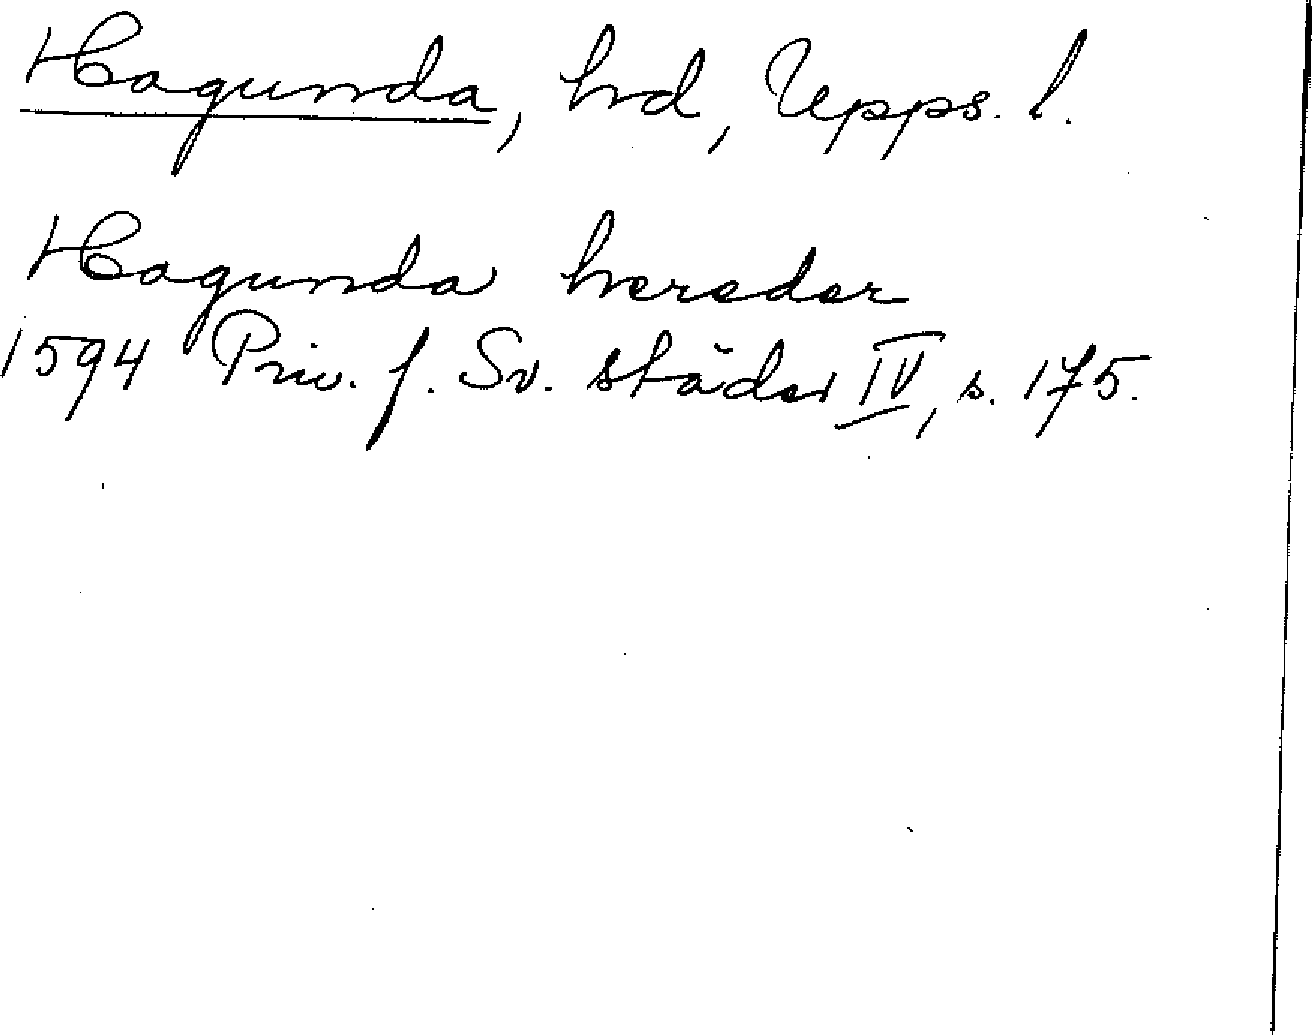 Hagunda, hd, Upps. l.
Hagunda hereder
1594 Priv. f. Sv. städer IV, s. 175.